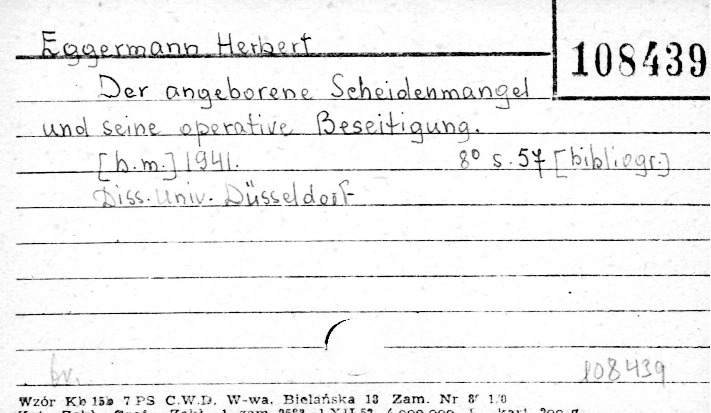 Eggermann Herbert
108439
Der angeborene Scheidenmangel
und seine operative Beseitigung.
[b.m.] 1941. 8° s. 57 [bibliogr.]
Diss. Univ. Düsseldorf
br. 108439
Wzór Kb 15b 7 PS C.W.D. W-wa, Bielańska 18 Zam. Nr